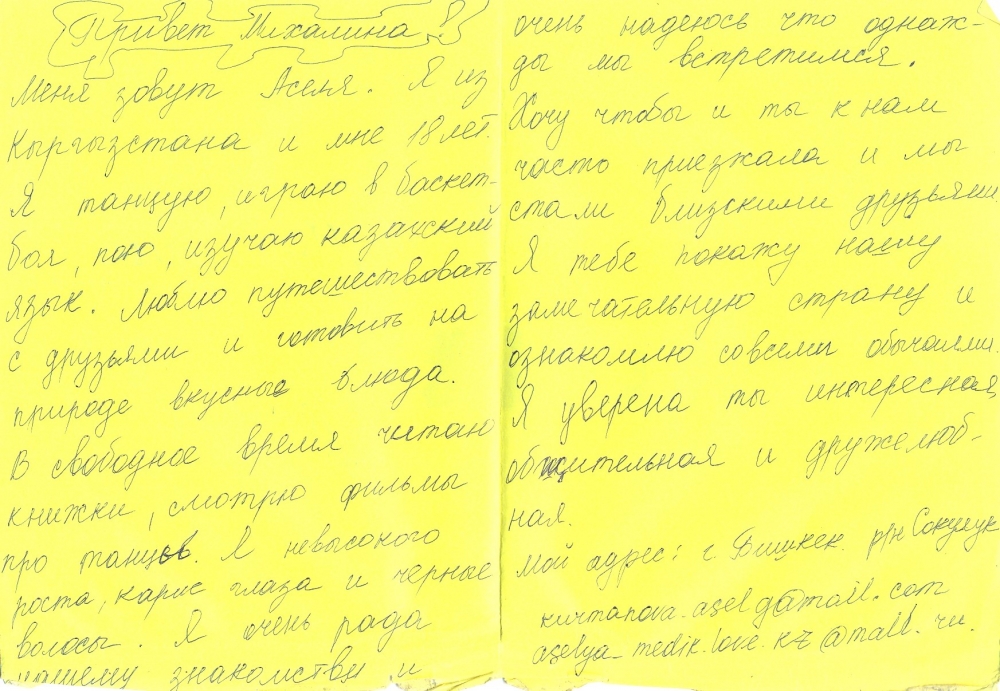 Привет Михалина!
Меня зовут Аселя. Я из
Кыргызстана и мне 18 лет.
Я танцую, играю в баскет-
бол, пою, изучаю казахский
язык. Люблю путешествовать
с друзьями и готовить на
природе вкусные блюда.
В свободное время читаю
книжки, смотрю фильмы
про танцев. Я невысокого
роста, карие глаза и черные
волосы. Я очень рада
нашему знакомству и
очень надеюсь что однаж-
ды мы встретимся.
Хочу чтобы и ты к нам
часто приезжала и мы
стали близскими друзьями.
Я тебе покажу нашу
замечательную страну и
ознакомлю со всеми обычаями.
Я уверена ты интересная,
общительная и дружелюб-
ная.
Мой адрес: г. Бишкек. р/н Сокулук
kurmanova.aselg@mail.com
aselya_medik.love.kz@mail.ru.